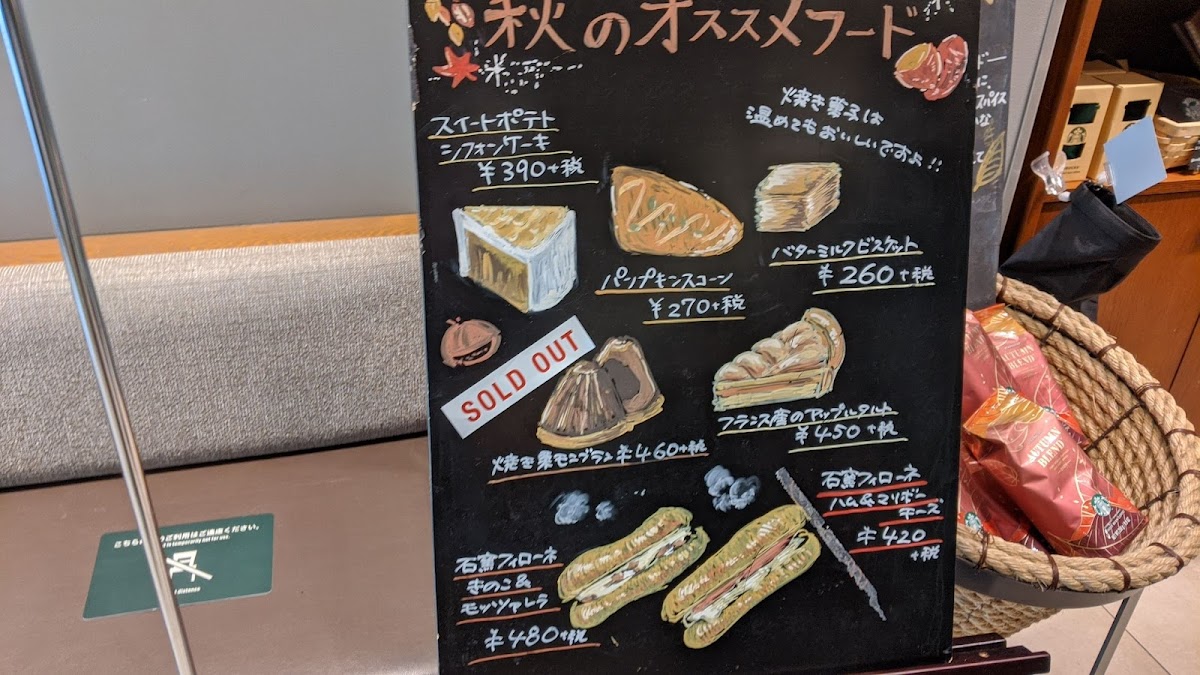 秋のオススメフード
スイートポテト
シフォンケーキ
¥390+税
焼き菓子は
温めてもおいしいですよ!!
パンプキンスコーン
¥270+税
バターミルクビスケット
¥260+税
SOLD OUT
焼き栗モンブラン ¥460+税
フランス産のアップルタルト
¥450+税
石窯フィローネ
ハム&マリボー
チーズ
¥420
+税
石窯フィローネ
きのこ&
モッツァレラ
¥480+税
スパイス
AUTUMN
BLEND
AUTUMN
BLEND
のご利用はご遠慮ください。
temporarily not for use.
distance